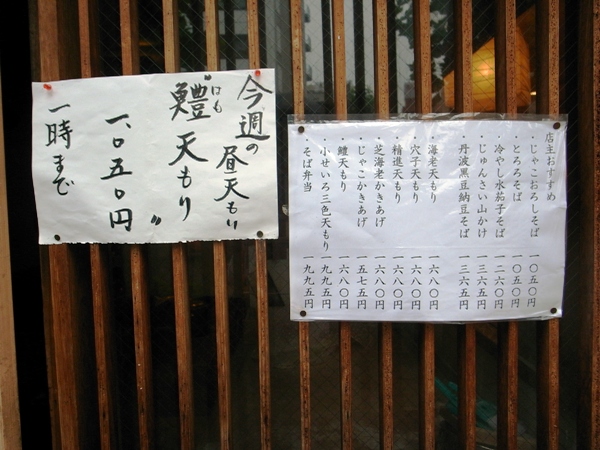 今週の昼天もり
“鱧天もり”
はも
一、〇五〇円
一時まで
店主おすすめ
・じゃこおろしそば 一〇五〇円
・とろろそば 一〇五〇円
・冷やし水茄子そば 一二六〇円
・じゅんさい山かけ 一三六五円
・丹波黒豆納豆そば 一三六五円
・海老天もり 一六八〇円
・穴子天もり 一六八〇円
・精進天もり 一六八〇円
・芝海老かきあげ 一六八〇円
・じゃこかきあげ 一五七五円
・鱧天もり 一六八〇円
・小せいろ三色天もり 一九九五円
・そば弁当 一九九五円